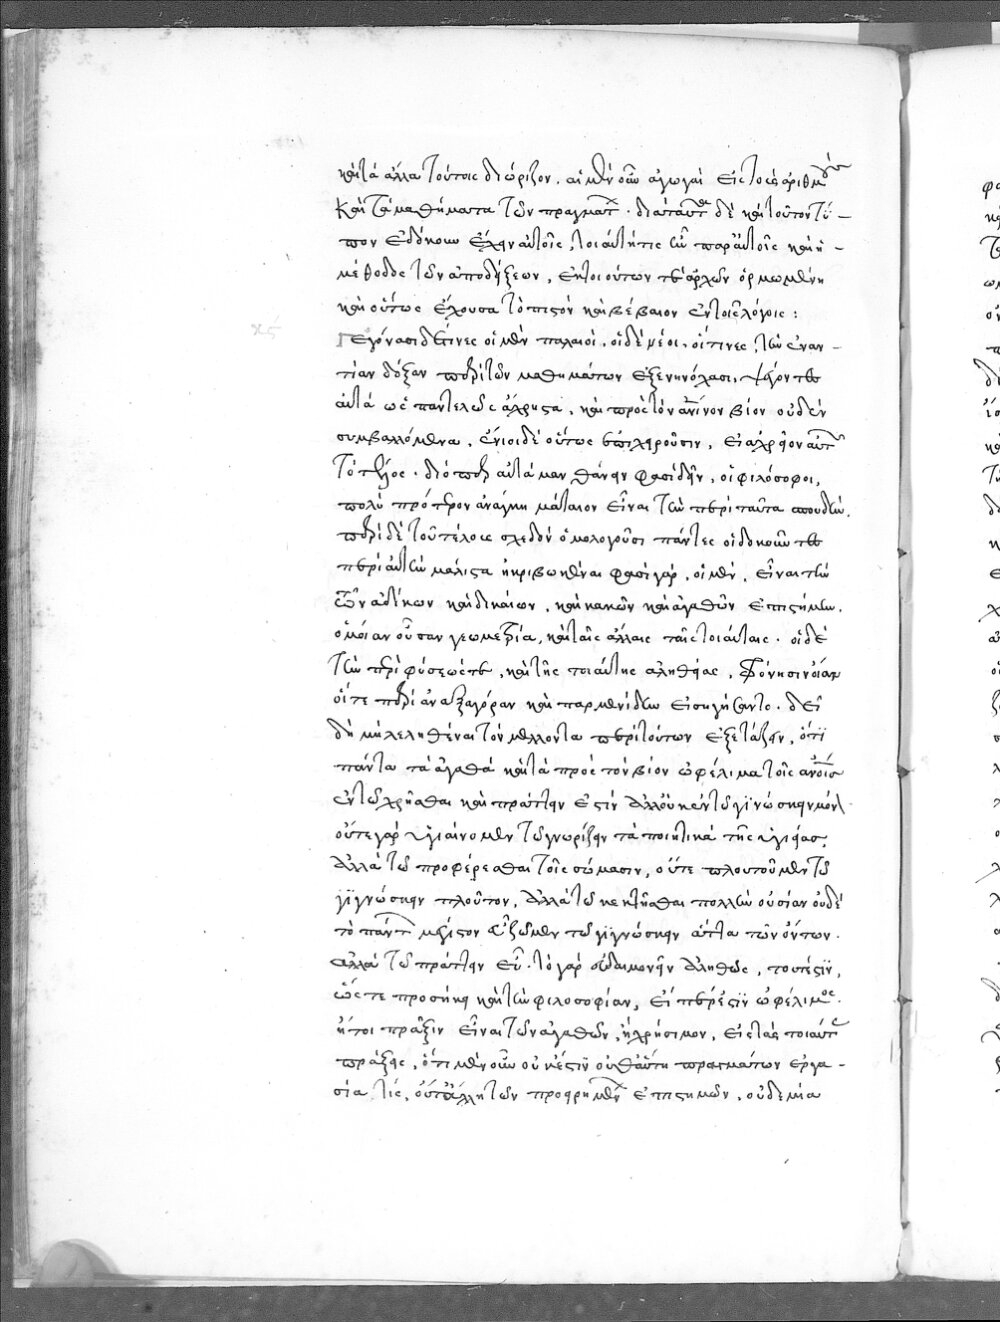 καὶ τὰ ἄλλα τούτοις διώριζον. αἱ μὲν οὖν ἀγωγαὶ εἰς τοὺς ἀριθμοὺς
καὶ τὰ μαθήματα τῶν πραγμάτων. διὰ ταῦτα δὲ καὶ τοῦτον τὸν τύ-
πον ἐδόκουν ἔχειν αὐτοῖς, τοιαύτη τις ὢν παρ' αὐτοῖς καὶ ἡ
μέθοδος τῶν ἀποδείξεων, ἐκ τοιούτων τε ἀρχῶν ὁρμωμένη
καὶ οὕτως ἔχουσα τὸ πιστὸν καὶ βέβαιον ἐν τοῖς λόγοις:
Γεγόνασι δέ τινες οἱ μὲν παλαιοὶ, οἱ δὲ νέοι, οἵτινες τὴν ἐναν-
τίαν δόξαν περὶ τῶν μαθημάτων ἐξενηνόχασι, ψέγοντες
αὐτὰ ὡς παντελῶς ἄχρηστα, καὶ πρὸς τὸν ἀνθρώπινον βίον οὐδὲν
συμβαλλόμενα. ἔνιοι δὲ οὕτως ἐπιχειροῦσιν, εἰ ἀχρεῖον αὐτῶν
τὸ τέλος. διόπερ αὐτὰ μανθάνειν φασὶ δεῖν, οἱ φιλόσοφοι,
πολὺ πρότερον ἀνάγκη μάταιον εἶναι τὴν περὶ ταῦτα σπουδήν.
περὶ δὲ τοῦ τέλους σχεδὸν ὁμολογοῦσι πάντες οἱ δοκοῦντες
περὶ αὐτῶν μάλιστα ἠκριβωκέναι φασὶ γὰρ, οἱ μὲν, εἶναι τὴν
τῶν ἀδίκων καὶ δικαίων, καὶ κακῶν καὶ ἀγαθῶν ἐπιστήμην,
ὁμοίαν οὖσαν γεωμετρία, καὶ ταῖς ἄλλαις ταῖς τοιαύταις. οἱ δὲ
τὴν περὶ φύσεώς τε, καὶ τῆς τοιαύτης ἀληθείας, φρόνησιν οἵαν
οἵ τε περὶ ἀναξαγόραν καὶ παρμενίδην εἰσηγήσαντο. δεῖ
δὴ μὴ λεληθέναι τὸν μέλλοντα περὶ τούτων ἐξετάζειν, ὅτι
πάντα τὰ ἀγαθὰ καὶ τὰ πρὸς τὸν βίον ὠφέλιμα τοῖς ἀνοις
ἐν τῶ χρῆσθαι καὶ πράττειν ἐστίν ἀλλ' οὐκ ἐν τῶ γιγνώσκειν μόνον.
οὔτε γὰρ ὑγιαίνομεν τῶ γνωρίζειν τὰ ποιητικὰ τῆς ὑγιείας,
ἀλλὰ τῶ προσφέρεσθαι τοῖς σώμασιν, οὔτε πλουτοῦμεν τῶ
γιγνώσκειν πλοῦτον, ἀλλὰ τῶ κεκτῆσθαι πολλὴν οὐσίαν οὐδὲ
τὸ πάντων μέγιστον εὖ ζῶμεν τῶ γιγνώσκειν ἄττα τῶν ὄντων.
ἀλλὰ τῶ πράττειν εὖ. τὸ γὰρ εὐδαιμονεῖν ἀληθῶς, τουτέστιν,
ὥστε προσήκει καὶ τὴν φιλοσοφίαν, εἴπερ ἐστὶν ὠφέλιμος.
ἤτοι πρᾶξιν εἶναι τῶν ἀγαθῶν, ἢ χρήσιμον, εἰς τὰς τοιαύτας
πράξεις, ὅτι μὲν οὖν οὐκ ἔστιν οὔθ' αὕτη πραγμάτων ἐργα-
σία τίς, οὔτ' ἄλλη τῶν προειρημένων ἐπιστημῶν, οὐδεμία